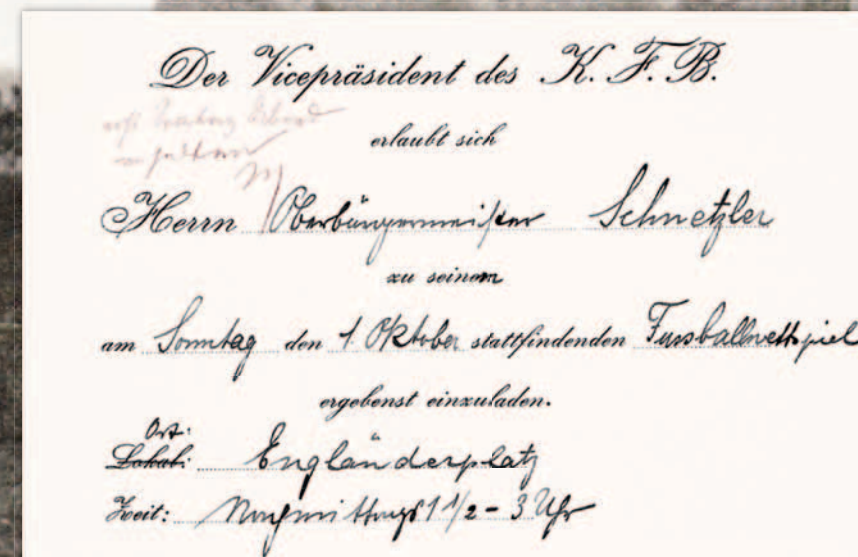 Der Vicepräsident des K. F. B.
erlaubt sich
Herrn Oberbürgermeister Schnetzler
zu seinem
am Sonntag den 1. Oktober stattfindenden Fussballwettspiel
ergebenst einzuladen.
Ort:
Lokal: Engländerplatz
Zeit: Nachmittags 1 1/2 - 3 Uhr